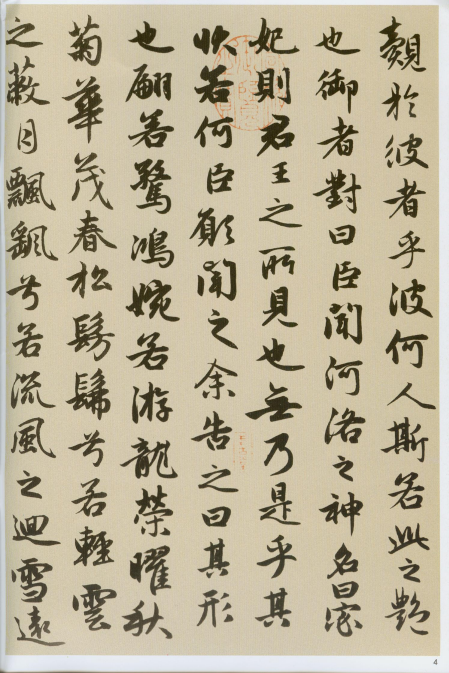 覿於彼者乎彼何人斯若此之艷
也御者對曰臣聞河洛之神名曰宓
妃則君王之所見也無乃是乎其
狀若何臣願聞之余告之曰其形
也翩若驚鴻婉若游龍榮曜秋
菊華茂春松髣髴兮若輕雲
之蔽月飄颻兮若流風之迴雪遠
4